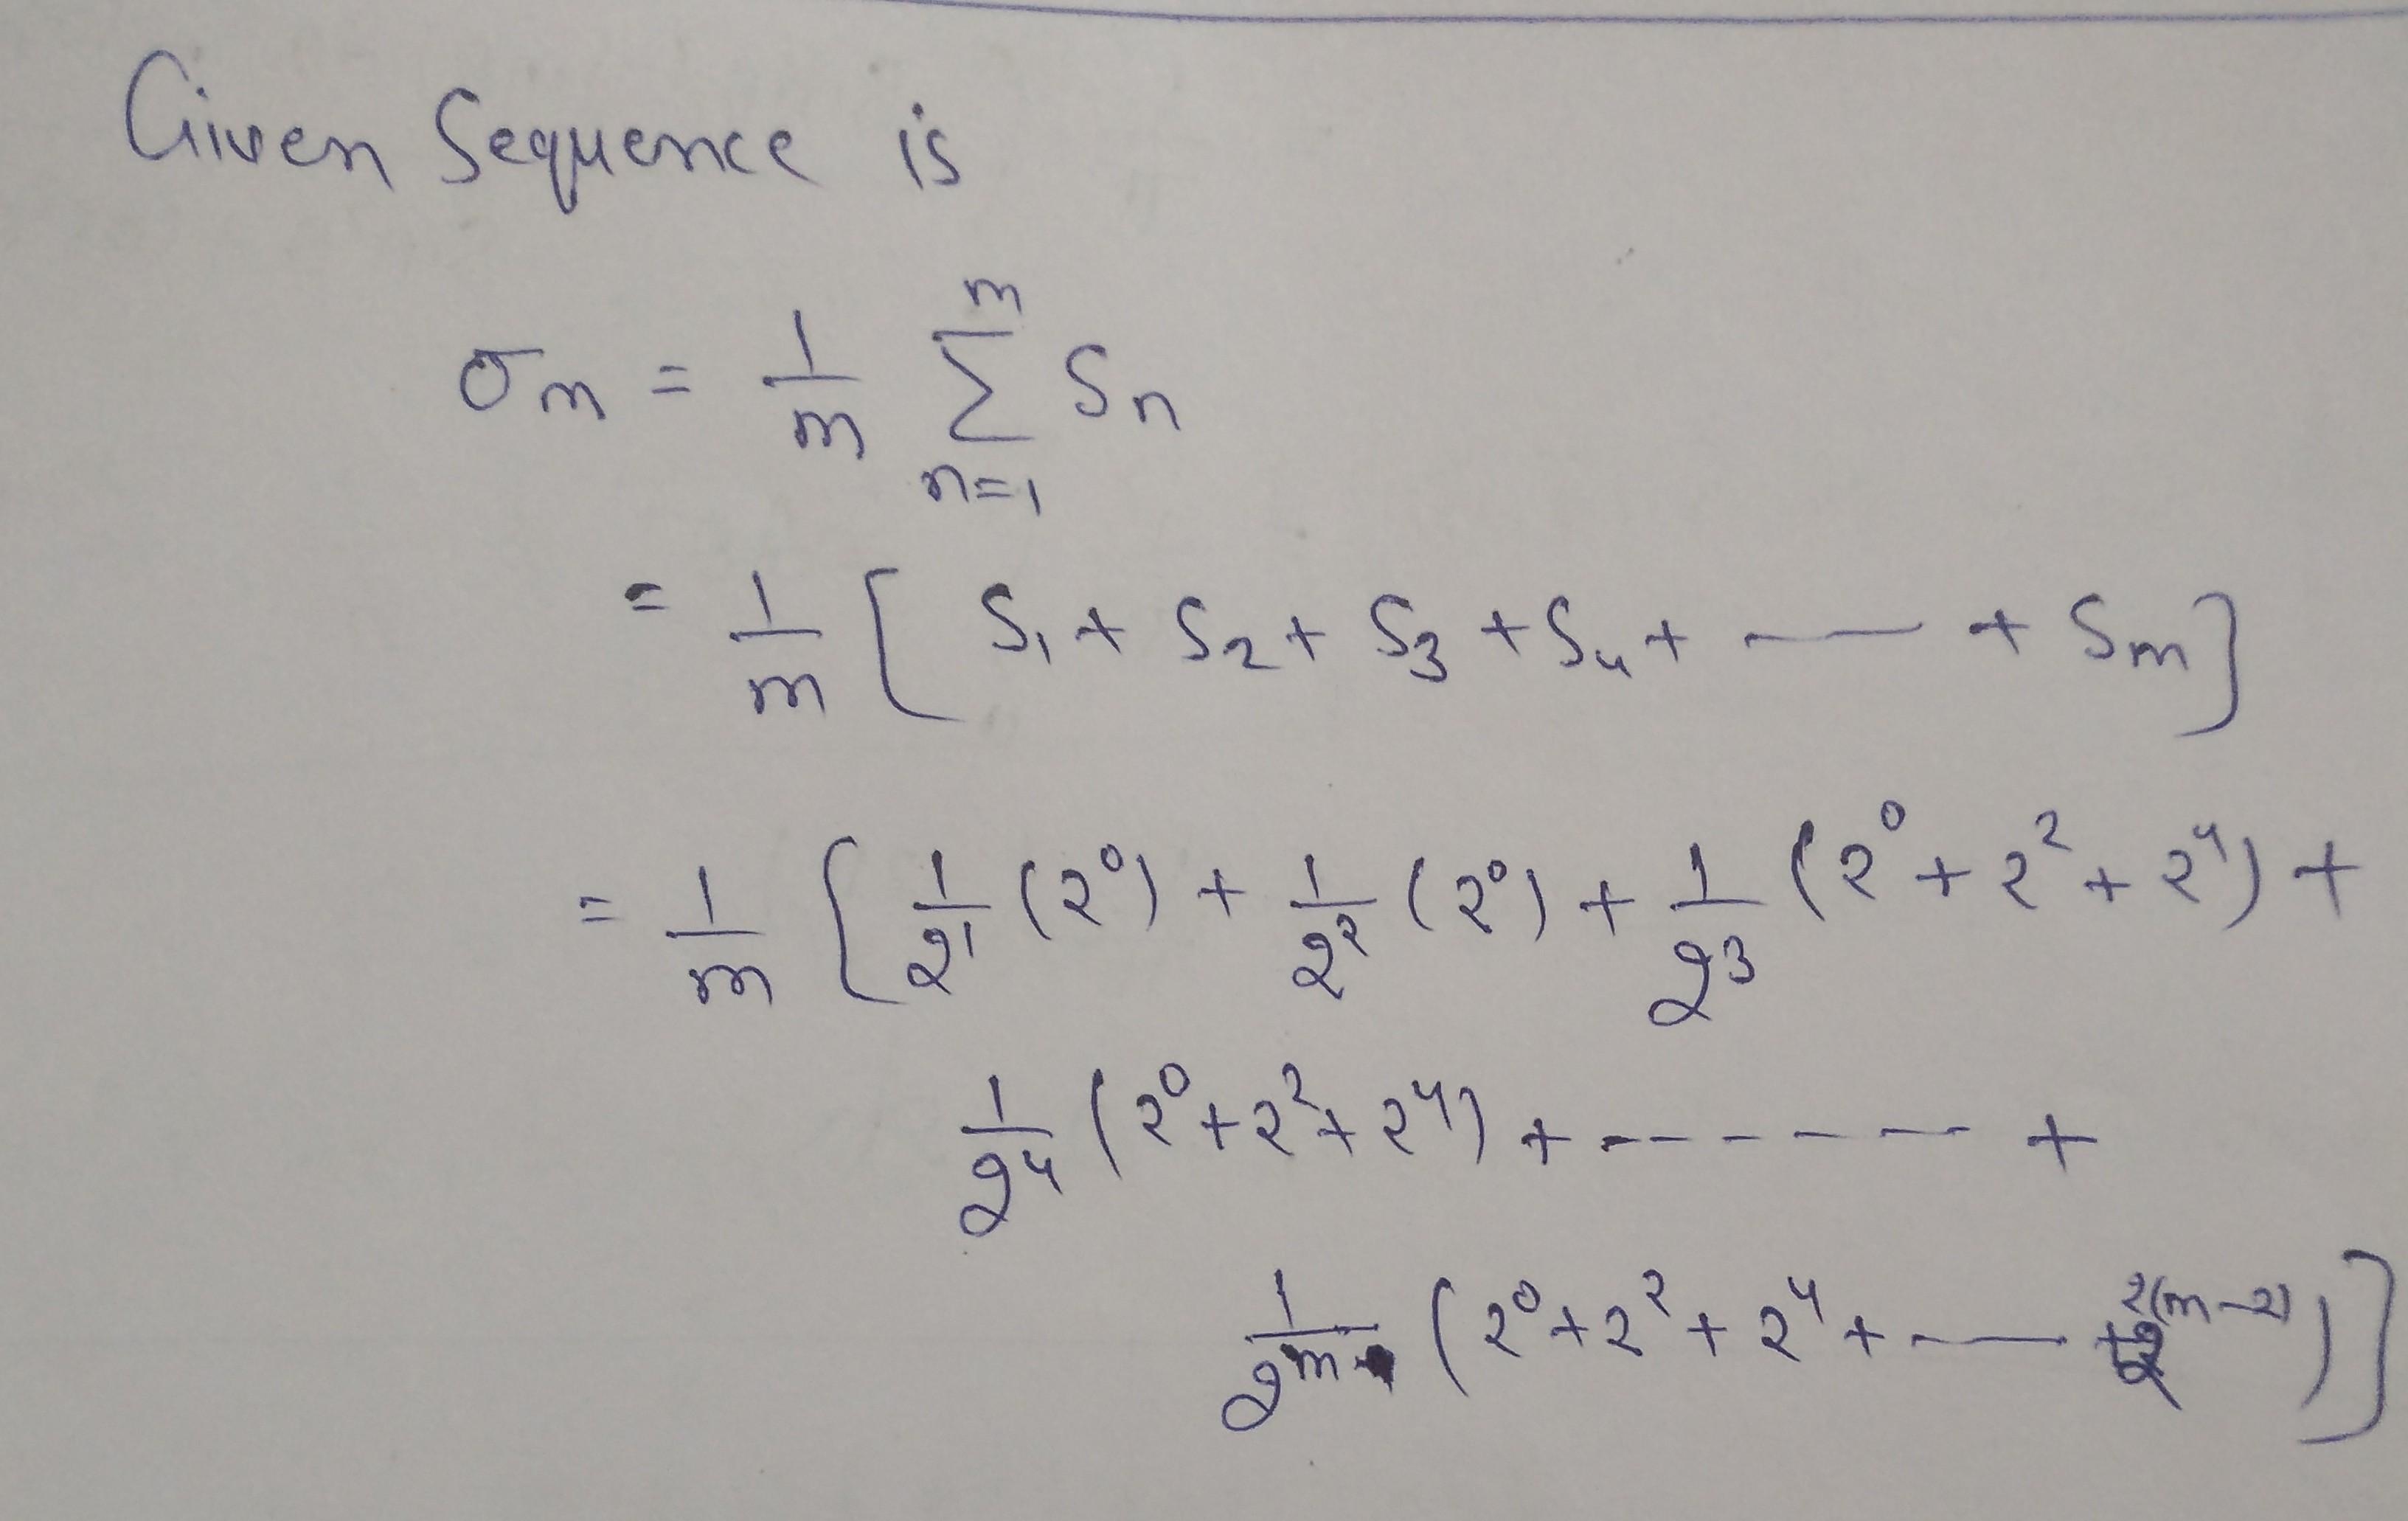 Given Sequence is
σm = 1/m ∑_{n=1}^{m} Sn
= 1/m [ S1 + S2 + S3 + S4 + ---- + Sm ]
= 1/m [ 1/2^1 (2^0) + 1/2^2 (2^0) + 1/2^3 (2^0 + 2^2 + 2^4) +
1/2^4 (2^0 + 2^2 + 2^4) + ------ +
1/2^m (2^0 + 2^2 + 2^4 + ---- + 2^{2(m-2)}) ]